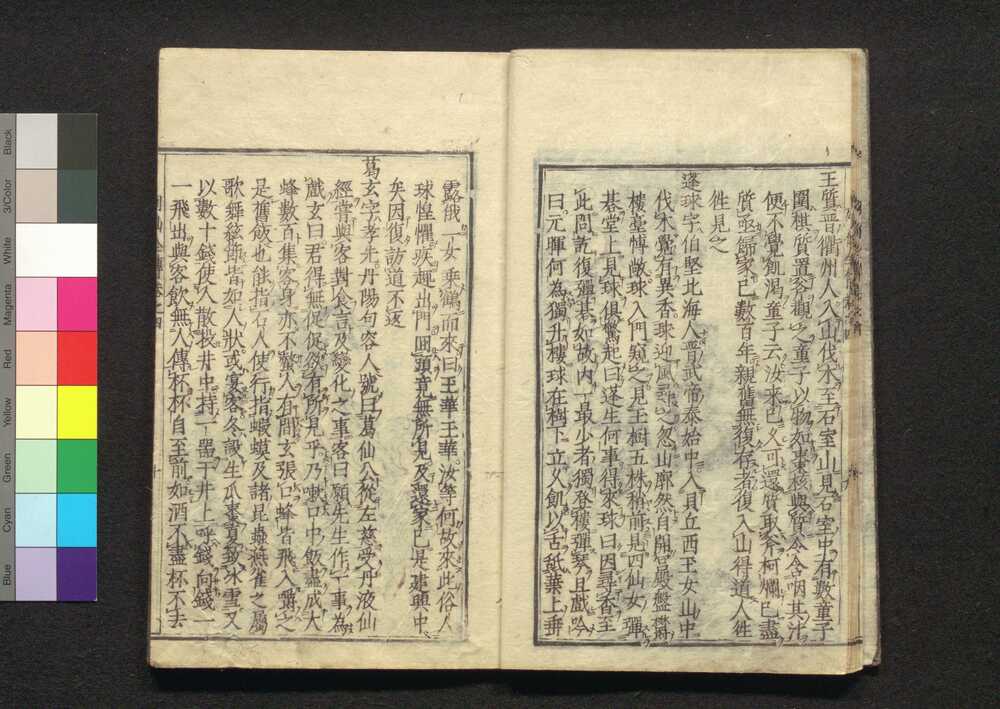 王質晉衢州人入山伐木至石室山見石室中有數童子
圍棋質置斧觀之童子以物如棗核與質令含咽其汁
便不覺飢渴童子云汝來已久可還質取斧柯爛已盡
質亟歸家已數百年親舊無復存者復入山得道人徃
徃見之
逢球字伯堅北海人晉武帝泰始中入貝丘西玉女山中
伐木覺有異香球迎風尋之忽山廓然自開宮殿盤欝
樓臺博敞球入門窺之見玉樹五株稍前見四仙女彈
棊堂上見球俱驚起曰逢生何事得來球曰因尋香至
此問訖復彈棊如故內一最少者獨登樓彈琴且戲吟
曰元暉何為獨升樓球在樹下立久飢以舌舐葉上垂
露俄一女乘鶴而來曰玉華玉華汝等何故來此俗人
球惶懼疾趨出門回顧竟無所見及還家已是建興中
矣因復訪道不返
葛玄字孝先丹陽句容人號曰葛仙公從左慈受丹液仙
經嘗與客對食言及變化之事客曰願先生作一事為
戲玄曰君得無促促欲有所見乎乃嗽口中飯盡成大
蜂數百集客身亦不螫人有間玄張口蜂皆飛入嚼之
是舊飯也能指石人使行指蝦蟇及諸昆蟲燕雀之屬
歌舞絃節皆如人狀或宴客冬設生瓜棗夏致冰雪又
以數十錢使人散投井中持一器于井上呼錢向錢一
一飛出與客飲無人傳杯杯自至前如酒不盡杯不去
Black
3/Color
White
Magenta
Red
Yellow
Green
Cyan
Blue